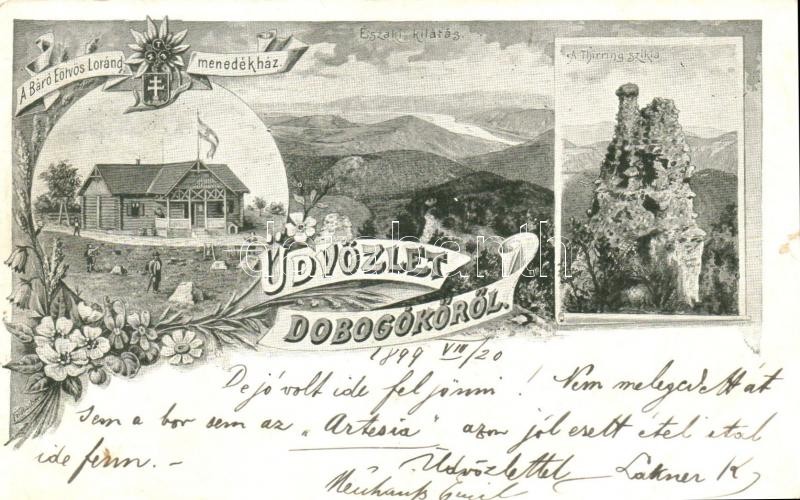 Északi kilátás.
A Thirring szikla
A Báró Eötvös Loránd
menedékház.
ÜDVÖZLET
DOBOGÓKŐRŐL.
1899 VIII/20
De jó volt ide feljönni! Nem melegedett át
sem a bor sem az „Artesia" azon jól esett étel ital
ide fenn. -
Üdvözlettel Lakner K
Neuhauß Emil